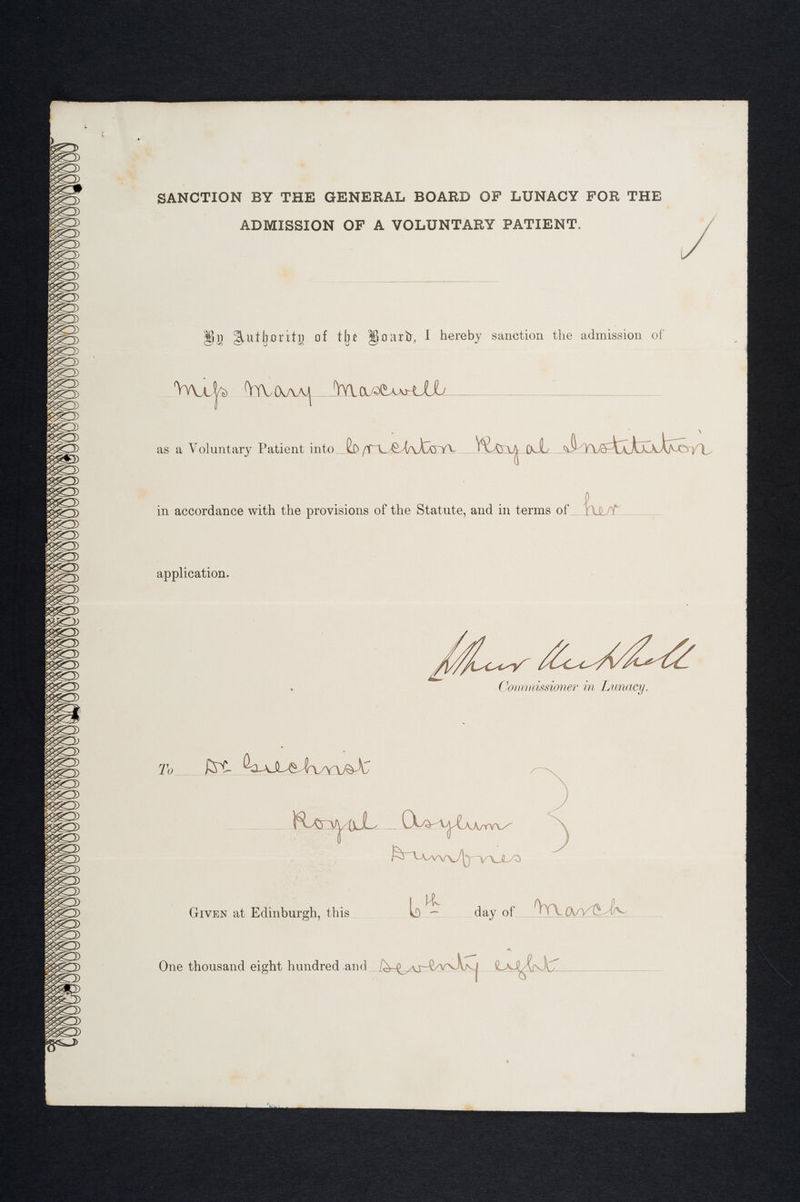 SANCTION BY THE GENERAL BOARD OF LUNACY FOR THE
ADMISSION OF A VOLUNTARY PATIENT.
By Authority of the Board, I hereby sanction the admission of
Miss Mary Maxwell
as a Voluntary Patient into Crichton Royal Institution
in accordance with the provisions of the Statute, and in terms of her
application.
Arthur Mitchell
Commissioner in Lunacy.
To Dr Gilchrist
Royal Asylum
Dumfries
GIVEN at Edinburgh, this 6th day of March
One thousand eight hundred and seventy eight